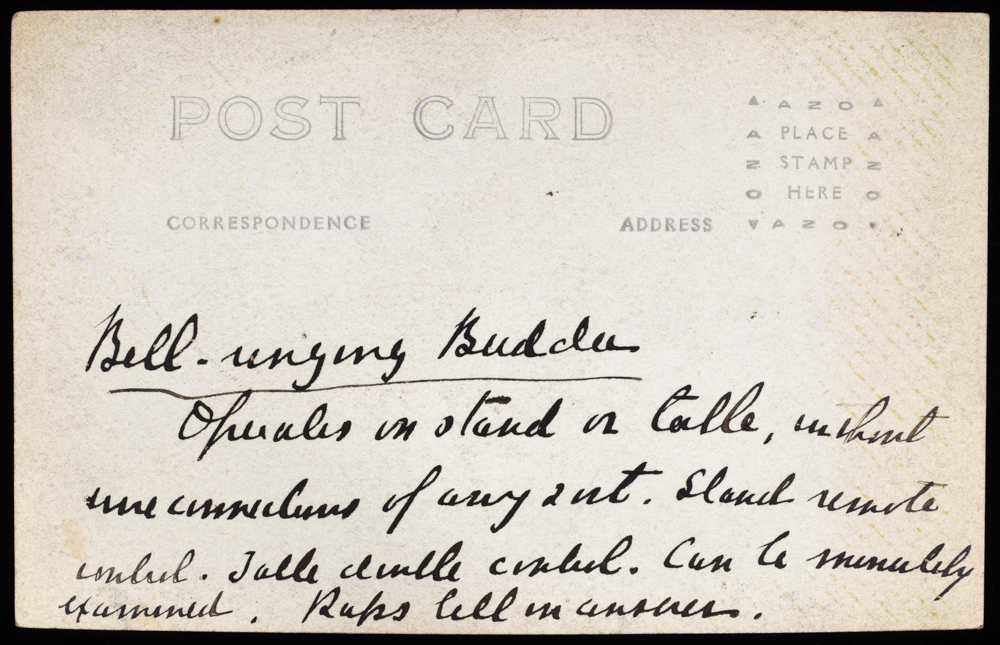 POST CARD
AZO
A PLACE A
Z STAMP Z
O HERE O
AZO
CORRESPONDENCE ADDRESS
Bell-ringing Budda
Operates on stand or table, without
wire connections of any sort. Stand remote
control. Table double control. Can be minutely
examined. Raps bell in answers.